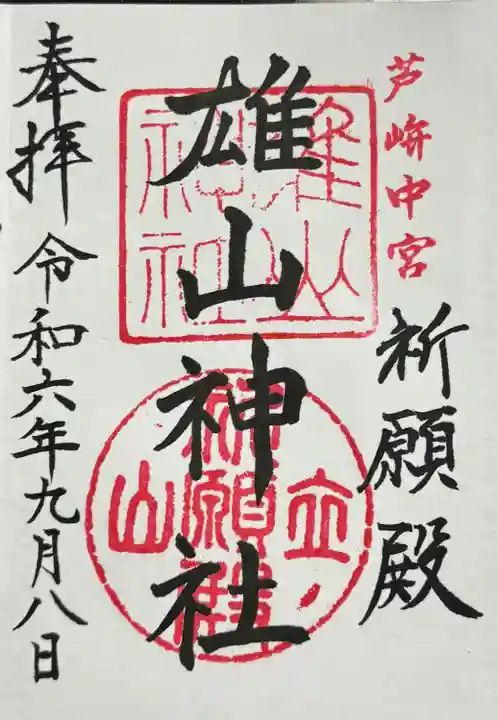 芦峅中宮
祈願殿
雄山神社
雄山
神社
立山
祈願殿
奉拝 令和六年九月八日